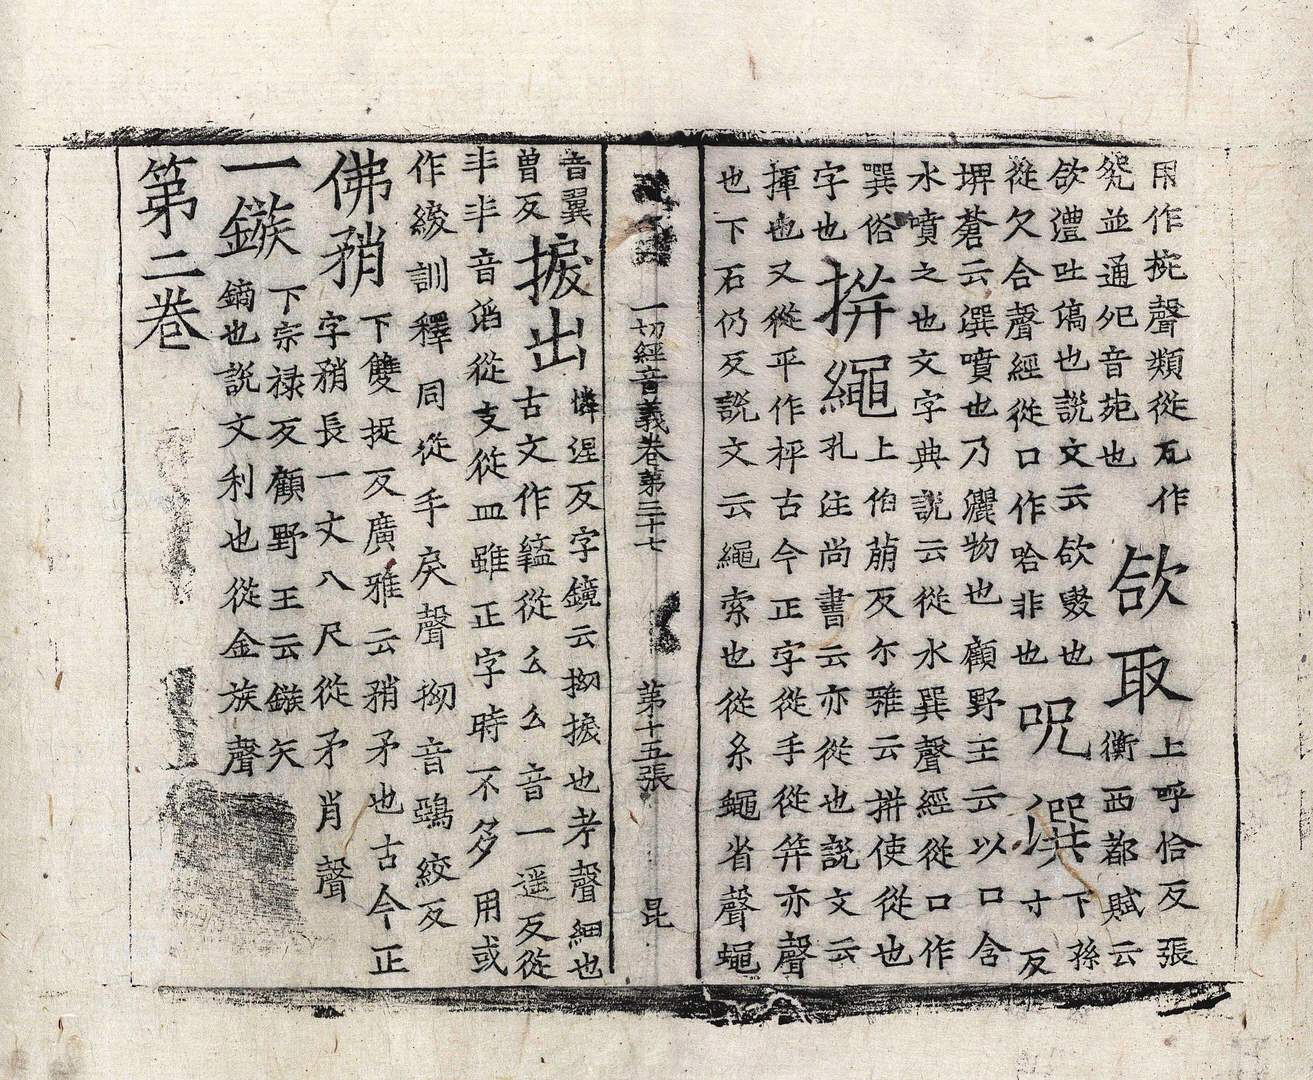 用作椀聲類從瓦作
㼝並通夗音苑也
欱取
上呼恰反張
衡西都賦云
欱澧吐滈也説文云欱歠也
從欠合聲經從口作哈非也
呪潠
下孫
寸反
埤蒼云潠噴也乃灑物也顧野王云以口含
水噴之也文字典説云從水巽聲經從口作
噀俗
字也
拼繩
上伯萠反尒雅云拼使從也
孔注尚書云亦從也説文云
揮也又從平作枰古今正字從手從笄亦聲
也下石仍反説文云繩索也從糸蠅省聲蠅
一切經音義卷第三十七 第十五張 昆
音翼
曾反
捩出
憐涅反字鏡云拗捩也考聲細也
古文作盭從幺幺音一遥反從
丯丯音滔從支從皿雖正字時不多用或
作綟訓釋同從手戾聲拗音鵶絞反
佛矟
下雙捉反廣雅云矟矛也古今正
字矟長一丈八尺從矛肖聲
一鏃
下宗禄反顧野王云鏃矢
鏑也説文利也從金族聲
第二卷